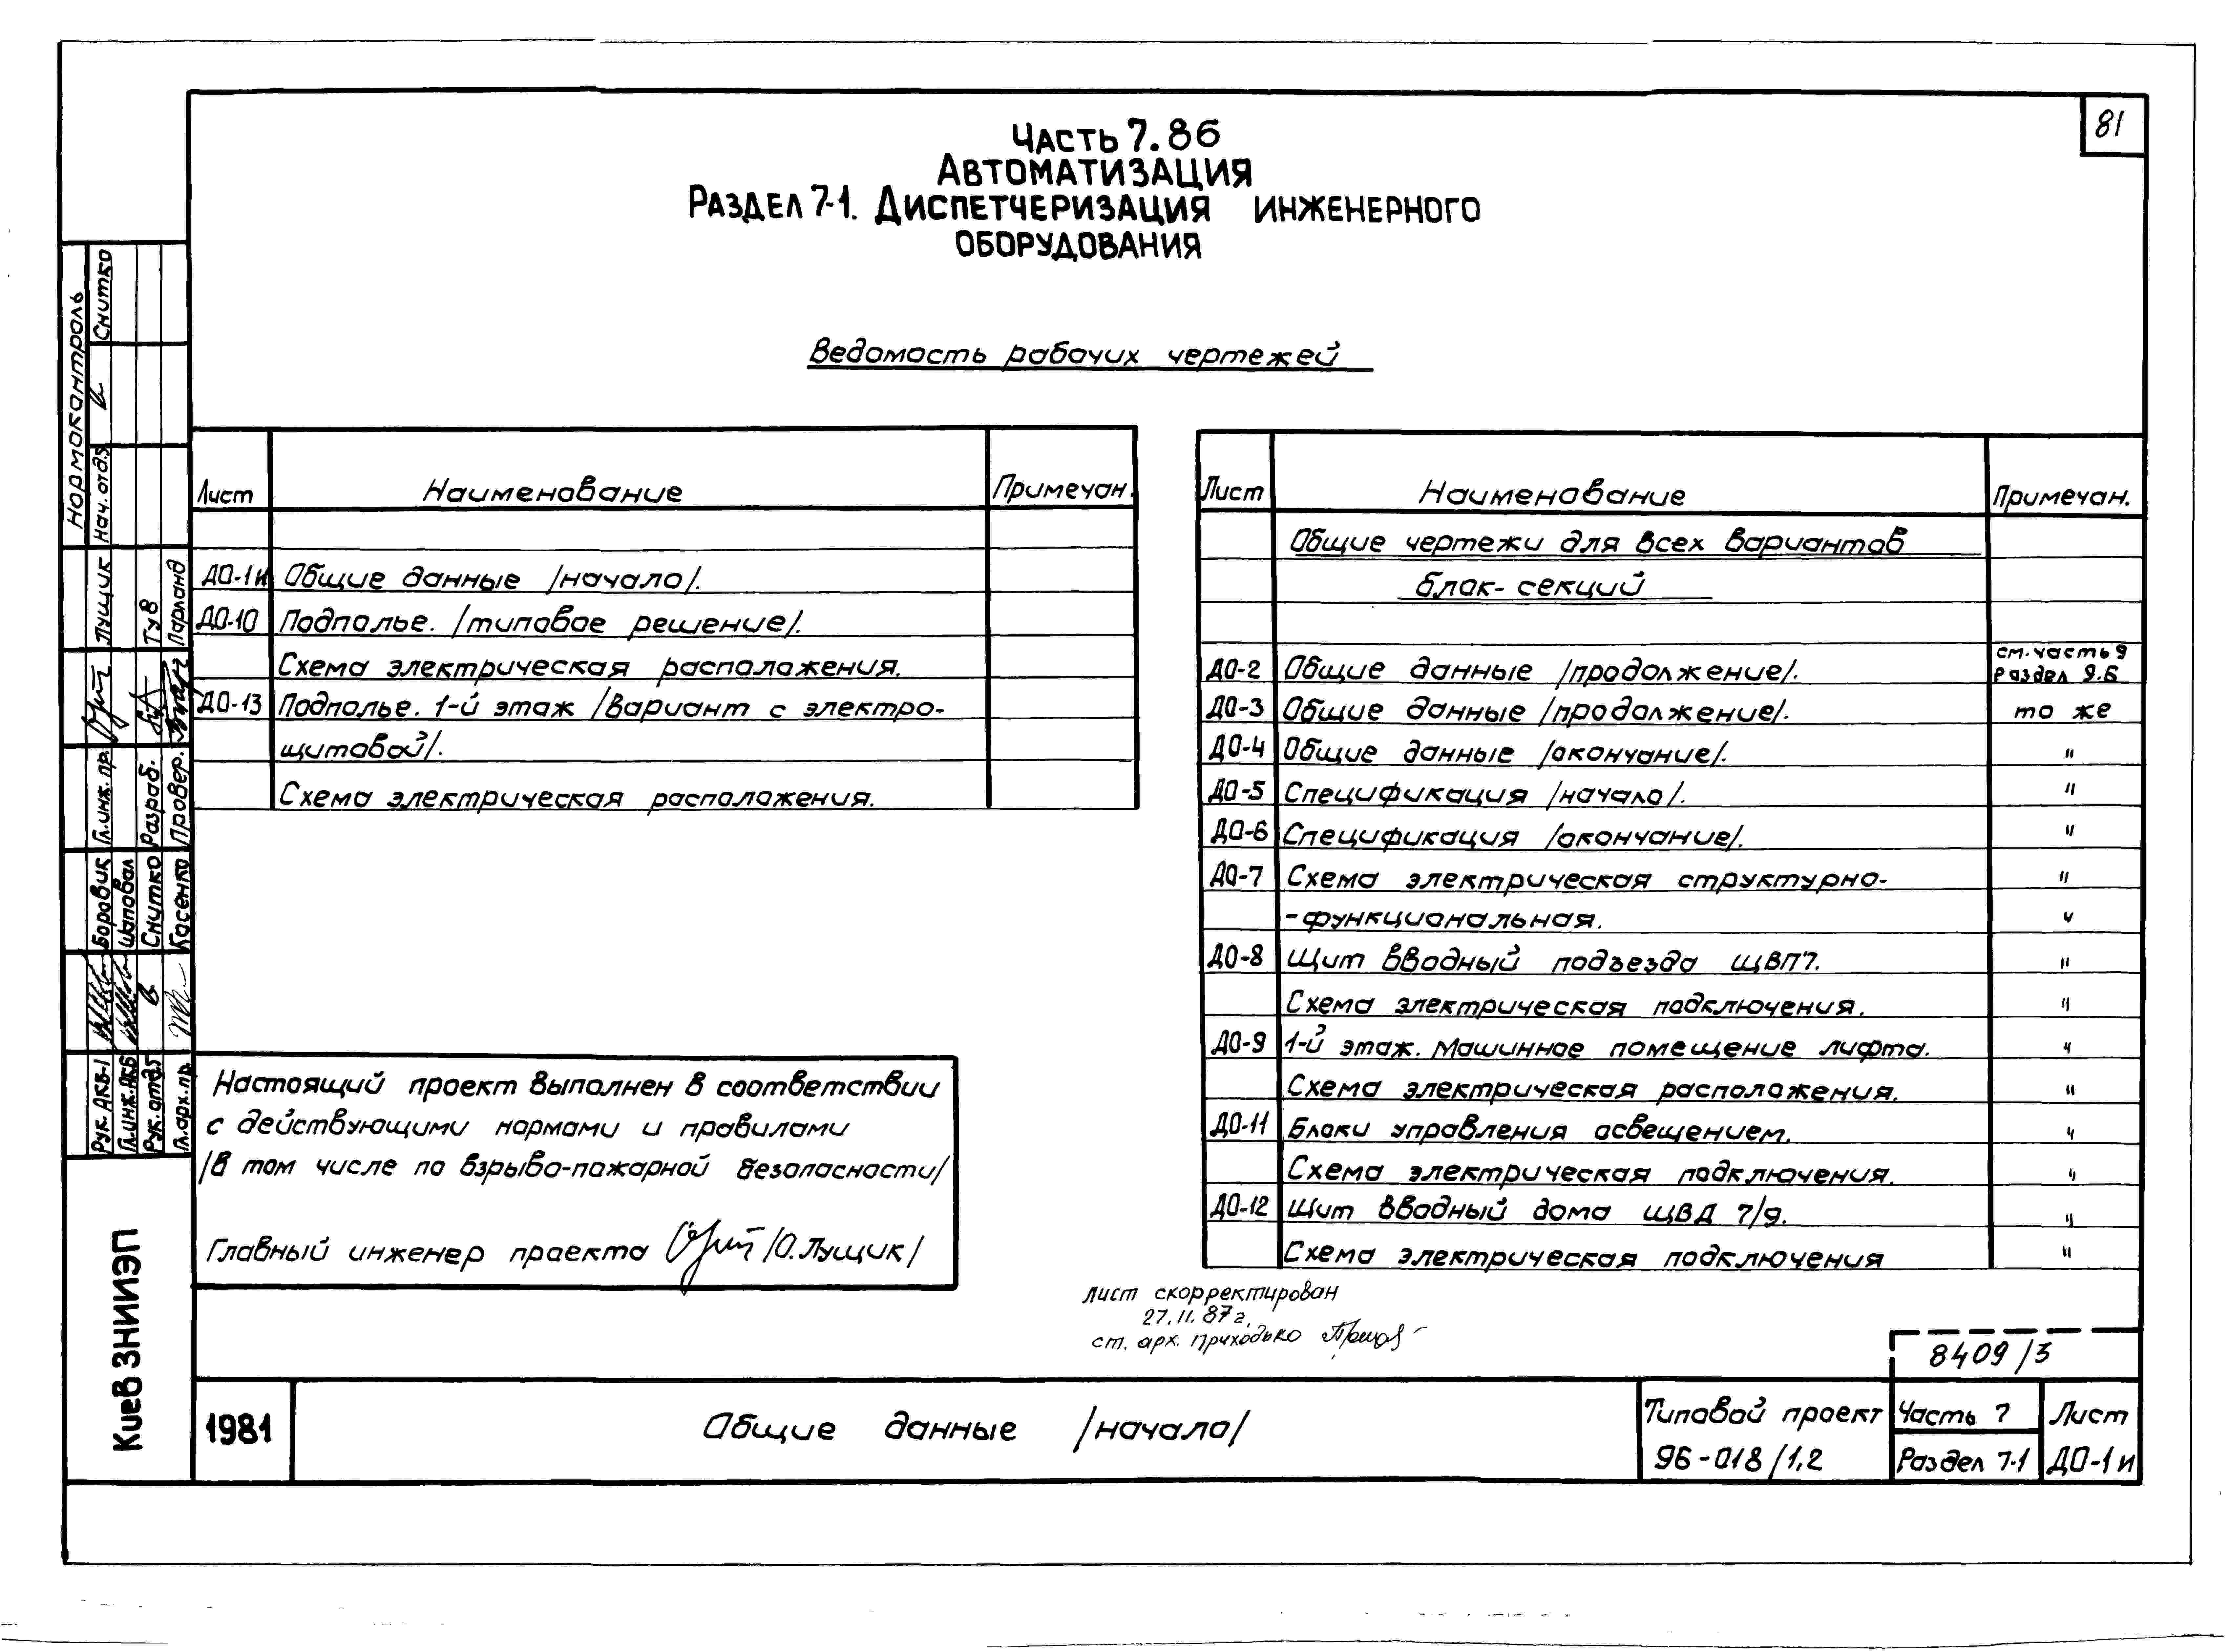 81
Часть 7.86
Автоматизация
Раздел 7-1. Диспетчеризация инженерного
оборудования
Ведомость рабочих чертежей
Лист Наименование Примечан.
ДО-1и Общие данные /начало/.
ДО-10 Подполье. /типовое решение/.
Схема электрическая расположения.
ДО-13 Подполье. 1-й этаж /вариант с электро-
щитовой/.
Схема электрическая расположения.
Лист Наименование Примечан.
Общие чертежи для всех вариантов
блок-секций
ДО-2 Общие данные /продолжение/. см. часть 9 раздел 9.Б
ДО-3 Общие данные /продолжение/. то же
ДО-4 Общие данные /окончание/. "
ДО-5 Спецификация /начало/. "
ДО-6 Спецификация /окончание/. "
ДО-7 Схема электрическая структурно- "
-функциональная. "
ДО-8 Щит вводный подъезда ЩВП7. "
Схема электрическая подключения. "
ДО-9 1-й этаж. Машинное помещение лифта. "
Схема электрическая расположения. "
ДО-11 Блоки управления освещением. "
Схема электрическая подключения. "
ДО-12 Щит вводный дома ЩВД 7/9. "
Схема электрическая подключения "
Настоящий проект выполнен в соответствии
с действующими нормами и правилами
/в том числе по взрыво-пожарной безопасности/
Главный инженер проекта /О. Лущик/
Лист скорректирован
27.11.87г.
ст. арх. Приходько
8409/3
1981 Общие данные /начало/
Типовой проект
96-018/1,2
Часть 7
Раздел 7-1
Лист
ДО-1и
Нормоконтроль
Нач. отд.5 Снитко
Гл. инж. пр. Лущик
Разраб. Тув
Провер. Парланд
Рук. АКБ-1 Боровик
Гл. инж. АКБ Шаповал
Рук. отд.5 Снитко
Гл. арх. пр. Косенко
Киев ЗНИИЭП